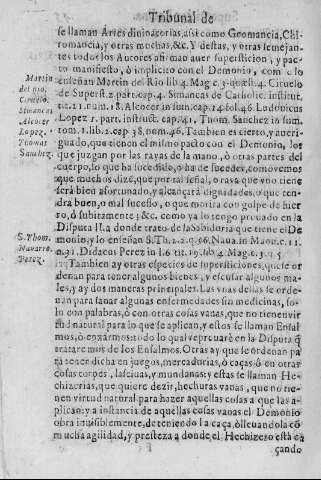 Tribunal de
se llaman Artes divinatorias, asi como Geomancia, Chi
romancia, y otras muchas, &c. Y destas, y otras semejan
tes todos los Autores afirman auer supersticion, y pac-
to manifiesto, ò implicito con el Demonio, com o lo
enseñan Martin del Rio lib 4. Mag c. 3. Ciruelo
de Superst. 2. part. cap. 4. Simancas de Catholic. institut.
tit. 21. num. 18. Alcocer in sum. cap. 14. fol. 46. Ludouicus
Lopez 1. part. instruct. cap. 41. Thom. Sanchez in sum.
tom. 1. lib. 2. cap 38. num. 46. Tambien es cierto, y aueri-
guado, que tienen el mismo pacto con el Demonio, los
que juzgan por las rayas de la mano, ò otras partes del
cuerpo, lo que ha sucedido, ò ha de suceder, como vemos
que muchos dizē, que por tal señal, o raya que vno tiene
serà bien afortunado, y alcançarà dignidades, o que ten
drà buen, o mal sucesso, o que morirà con golpe de hier
ro, ò subitamente; &c. como ya lo tengo prouado en la
Disputa II. a donde trato de la Sabiduria que tiene el De
monio, y lo enseñan S. Th. 2. 2. q. 96. Naua. in Manu. c. 11.
n. 31. Didacus Perez in l. 6 tit. 19. lib 4. Mag. c. 3. q. 5
Tambien ay otras especies de supersticiones, que se or
denan para tener algunos bienes, y escusar algunos ma-
les, y ay dos maneras principales. Las vnas dellas se or-
denan para sanar algunas enfermedades sin medicinas, so-
lo con palabras, ò con otras cosas vanas, que no tienen vir
tud natural para lo que se aplican, y estos se llaman Ensal
mos, ò enxarmos: todo lo qual reprouarè en la Disputa q̄
trataremos de los Ensalmos. Otras ay que se ordenan pa
ra tener dicha en juegos, mercadurias, ò caças ò en otras
cosas torpes, lasciuas, y mundanas: y estas se llaman He-
chizerias, que quiere dezir, hechuras vanas, que no tie-
nen virtud natural para hazer aquellas cosas a que las a-
plican: y a instancia de aquellas cosas vanas el Demonio
obra inuisiblemente, deteniendo la caça, ò lleuandola cō
mucha agilidad, y presteza a donde el Hechizero està ca
çando
Martin
del rio.
Ciruelo.
Simancas
Alcocer
Lopez.
Thomas
Sanchez.
S. Thom.
Nauarro.
Perez.